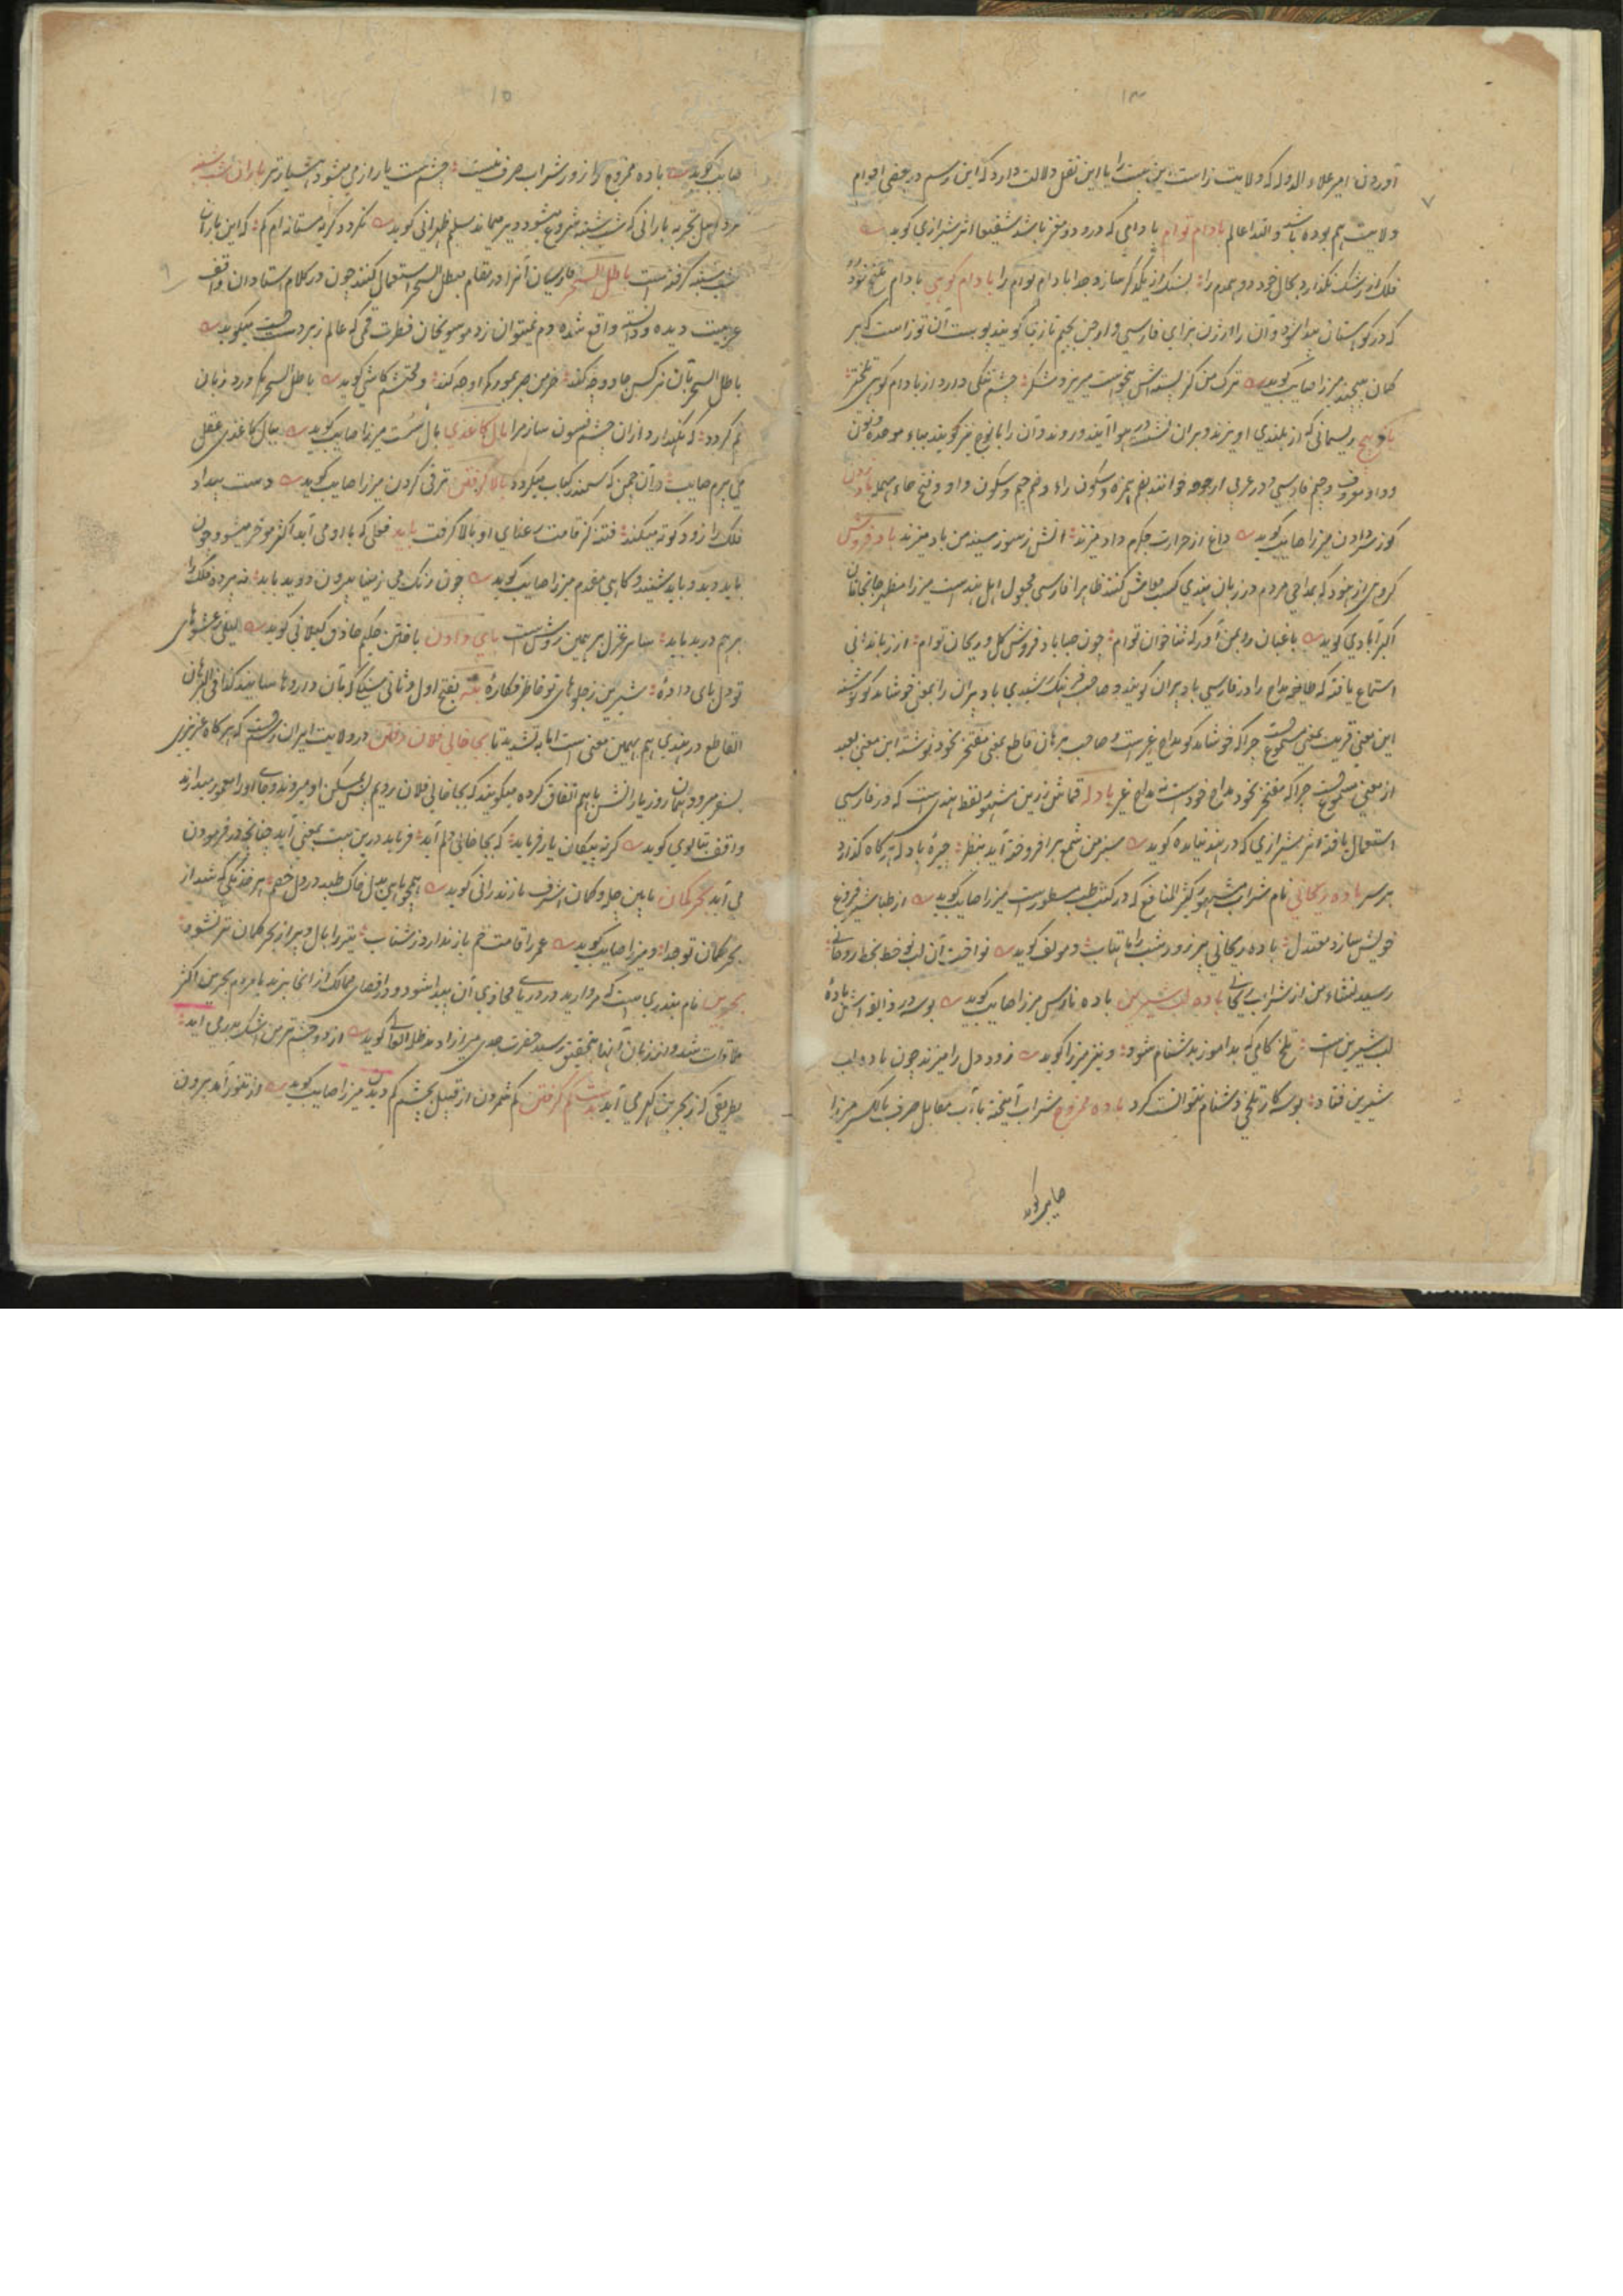 ۱۴
آوردن امیر علاء الدوله که ولایت زاست این بیت را با این نقل دلالت دارد که این رسم در بعضی اقوام
ولایت هم بوده باشد والله اعلم بادام توام بادامی که در و دو مغز باشد شفیعا اثر شیرازی گوید
فلک از رشک نگذارد بحال خود دو همدم را بسنگ از یکدگر سازد جدا بادام توام را بادام کوهی بادام تلخ
که در کوهستان پیدا شود و آن را ارژن بزای فارسی و ارجن بجیم تازی گویند پوست آن توز است که بر
کمان پیچند میرزا صایب گوید ترک من کز پسته اش پیوست میریزد شکر چشم تنگی دارد از بادام کوهی تلختر
بانوج ریسمانی که از بلندی آویزند و بران نشسته در هوا آیند و روند و آن را بانوچ نیز گویند بباء موحده و نون
و واو معروف و جیم فارسی و در عربی ارجوحه خوانند بضم همزه و سکون راء و ضم جیم و سکون واو و فتح حاء مهمله باد زدن
گوز سر دادن میرزا صایب گوید داغ از حرارت جگرم داد میزند آتش ز سوز سینه من باد میزند باد فروش
گروهی از هنود که بمداحی مردم در زبان هندی کسب معاش کنند ظاهرا فارسی مجهول اهل هند است میرزا مظهر جانجانان
اکبرآبادی گوید باغبان را بچمن آور که ثناخوان توام چون صبا باد فروش گل و ریحان توام از زباندانی
استماع یافته که طایفه مداح را در فارسی باد پران گویند و صاحب فرهنگ رشیدی باد پران را بمعنی خوشامد گو نوشته
این معنی قریب بمعنی مسموع است چراکه خوشامد گو مداح غیر است و صاحب برهان قاطع بمعنی مفتخر بخود نوشته این معنی بعید
از معنی مسموع است چراکه مفتخر بخود مداح خود است نه مداح غیر بادله قماش زرین مشهور لفظ هندی است که در فارسی
استعمال یافته اثر شیرازی که در هند نیامده گوید سبز من شمع برافروخته آید بنظر چیره بادله هرگاه گذارد
بر سر باده ریحانی نام شرابی مشهور کثیر المنافع که در کتب طب مسطور است میرزا صایب گوید از طباشیر فروغ
خویش سازد معتدل باده ریحانی پر زور شب را ماهتاب و مولف گوید نواخت آن لب نوخط بخط
رسید نشاء من از شراب ریحانی باده لب شیرین باده نارس میرزا صایب گوید بوسه در ذایقه اش باده
لب شیرین است تلخ کامی که بدآموز بدشنام شود و نیز میرزا گوید زود دل را میزند چون باده لب
شیرین فتاد بوسه کار تلخی دشنام نتوانست کرد باده ممزوج شراب آمیخته بآب مقابل صرف بالکسر میرزا
صایب گوید
۱۵
صایب گوید باده ممزوج را زور شراب صرف نیست چشم مست یار از می میشود هشیارتر باران شنبه
مرد اهل تجربه بارانی که شب شنبه شروع میشود دیر میماند سلیم طهرانی گوید نگردد گریه مستانه ام کم که این باران
شب شنبه گرفته است باطل السحر فارسیان آنرا در مقام مبطل السحر استعمال کنند چون در کلام استادان واقف
عربیت دیده و دانسته واقع شده دم نمیتوان زد موسویخان فطرت قمی که عالم زبردست است میگوید
باطل السحر بتان نرگس جادو چکند خرمن صبر بمور کمر او چه کند و محتشم کاشی گوید باطل السحر مگر ورد زبان
کم گردد که نگهدارد ازان چشم فسون ساز مرا بال کاغذی بال سست میرزا صایب گوید ببال کاغذی عقل
می پرم صایب دران چمن که سمندر کباب میگردد بالا گرفتن ترقی کردن میرزا صایب گوید دست بیداد
فلک را زود کوته میکند فتنه کز قامت رعنای او بالا گرفت باید فعلی که با او می آید اکثر موخر میشود چون
باید دید و باید شنید و گاهی مقدم میرزا صایب گوید چون رنگ می ز مینا بیرون دوید باید نه پرده فلک را
برهم درید باید سایر غزل برهمین روش است پای دادن بافتن حکیم حاذق گیلانی گوید
القاطع در هندی هم بهمین معنی است اما به تشدید تا بجا خالی فلان رفتن در ولایت ایران رسم است که هرگاه عزیزی
بسفر میرود همان روز یارانش باهم اتفاق کرده میگویند که بجا خالی فلان رویم پس بمسکن او میروند و جای او را معمور میدارند
واقف بتالوی گوید گر نه پیکان یار فرماید که بجا خالی دلم آید فرماید درین بیت بمعنی آید چنانچه در فرمودن
می آید بحر کمان مابین چله و کمان اشرف مازندرانی گوید
بحر کمان تو جدا و میرزا صایب گوید عمر را قامت خم باز ندارد ز شتاب تیر را بال و پر از بحر کمان تر نشود
بحرین نام بندری است که مروارید در دریای محاذی آن پیدا شود و در اقصای ممالک از انجا برند با مردم بحرین اکثر
ملاقات شد و از زبان آنها بتحقیق رسید حضرت جدی میرازاد مدظله العالی گوید از دو چشم تر من اشک بدر می آید
بطریقی که ز بحرین گهر می آید بدست کم گرفتن کم شمردن از قبیل بچشم کم دیدن میرزا صایب گوید از تنور آمد برون